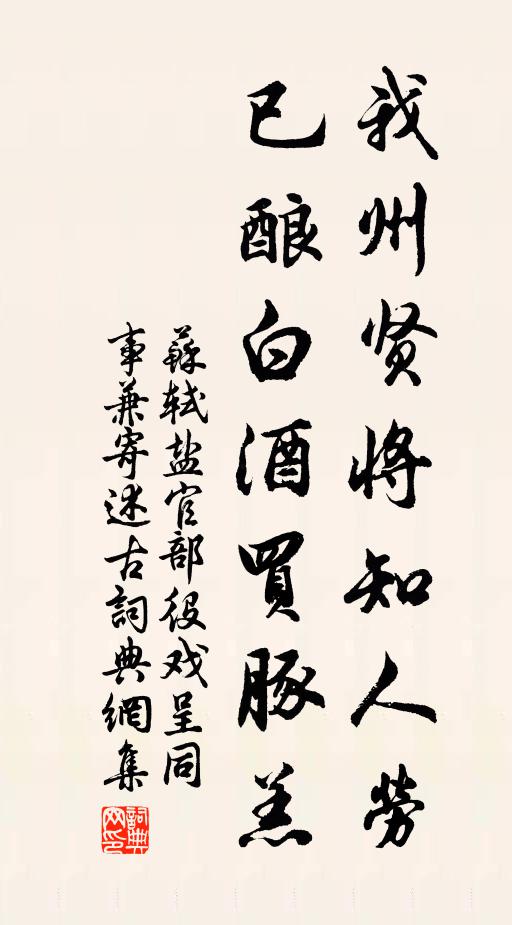 我州贤将知人劳
已酿白酒買豚羔
蘇轼盐官部役戏呈同
事兼寄述古詞典網集
詞典网印